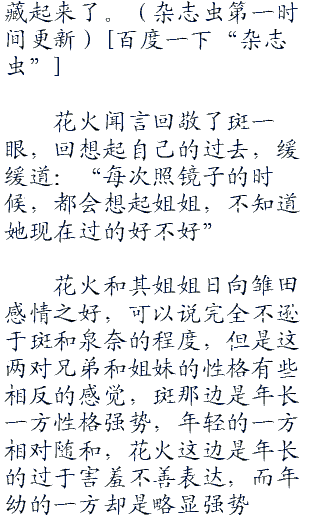 藏起来了。（杂志虫第一时
间更新）[百度一下“杂志
虫”]
花火闻言回敬了斑一
眼，回想起自己的过去，缓
缓道：“每次照镜子的时
候，都会想起姐姐，不知道
她现在过的好不好”
花火和其姐姐日向雏田
感情之好，可以说完全不逊
于斑和泉奈的程度，但是这
两对兄弟和姐妹的性格有些
相反的感觉，斑那边是年长
一方性格强势，年轻的一方
相对随和，花火这边是年长
的过于害羞不善表达，而年
幼的一方却是略显强势